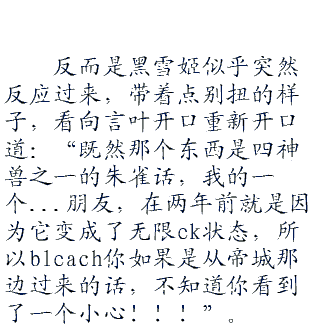 反而是黑雪姬似乎突然
反应过来，带着点别扭的样
子，看向言叶开口重新开口
道：“既然那个东西是四神
兽之一的朱雀话，我的一
个...朋友，在两年前就是因
为它变成了无限ck状态，所
以blcach你如果是从帝城那
边过来的话，不知道你看到
了一个小心！！！”。